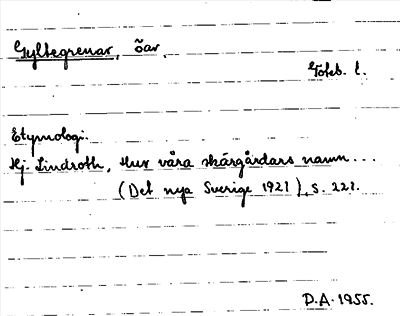 Gyltegrenar, öar.
Göteb. l.
Etymologi:
Hj. Lindroth, Hur våra skärgårdars namn...
(Det nya Sverige 1921), s. 221.
D.A. 1955.